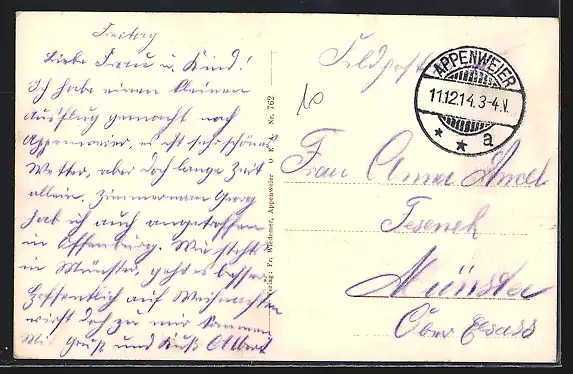 Freitag
Liebe Frau u. Kind!
Ich habe einen kleinen
Ausflug gemacht nach
Appenweier, es ist sehr schönes
Wetter, aber doch lange Zeit
allein. Zimmermann Georg
hab ich auch angetroffen
in Offenburg. Wie steht's
in Münster, geht es besser.
Hoffentlich auf Weihnachten
wirst doch zu mir kommen
Mit Gruß und Kuß Albert
Verlag: Fr. Wiedemer, Appenweier O E A Nr. 762
Feldpost
APPENWEIER
11.12.14.3-4.V.
* * a
Frau Anna
Münster
Ober Elsass